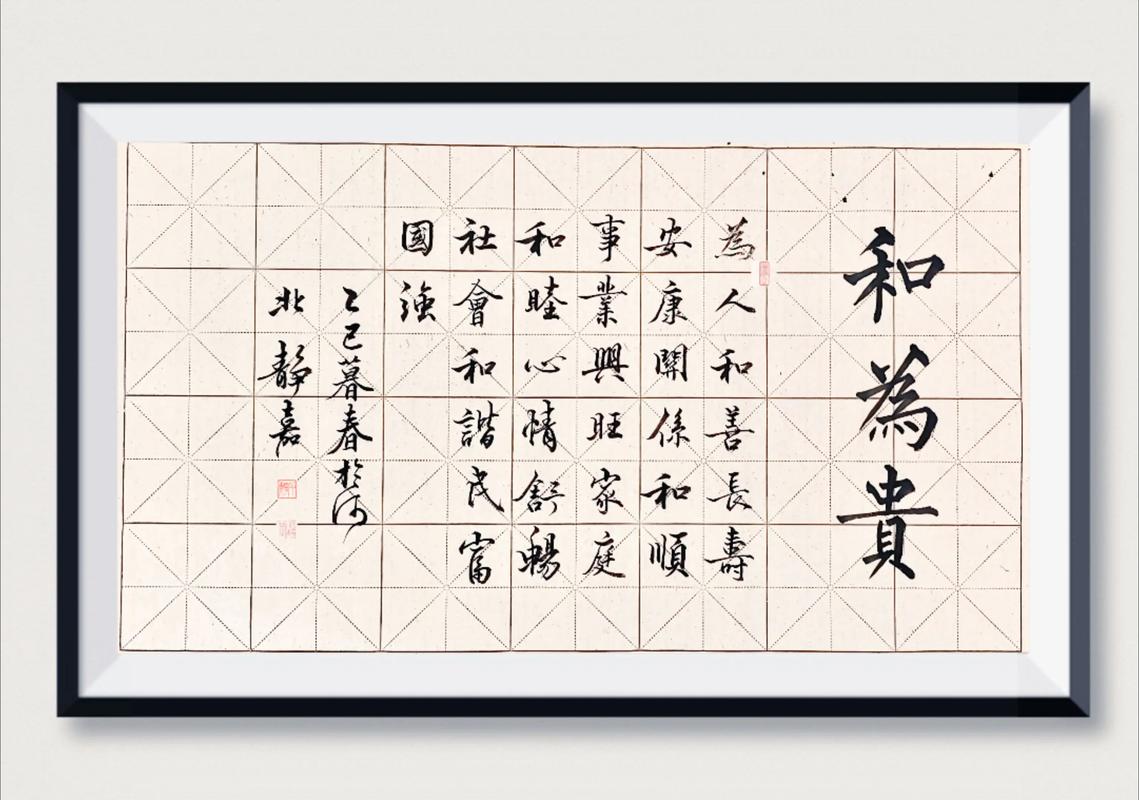 和為貴
為人和善長壽
安康關係和順
事業興旺家庭
和睦心情舒暢
社會和諧民富
國強
乙巳暮春於河
北靜嘉